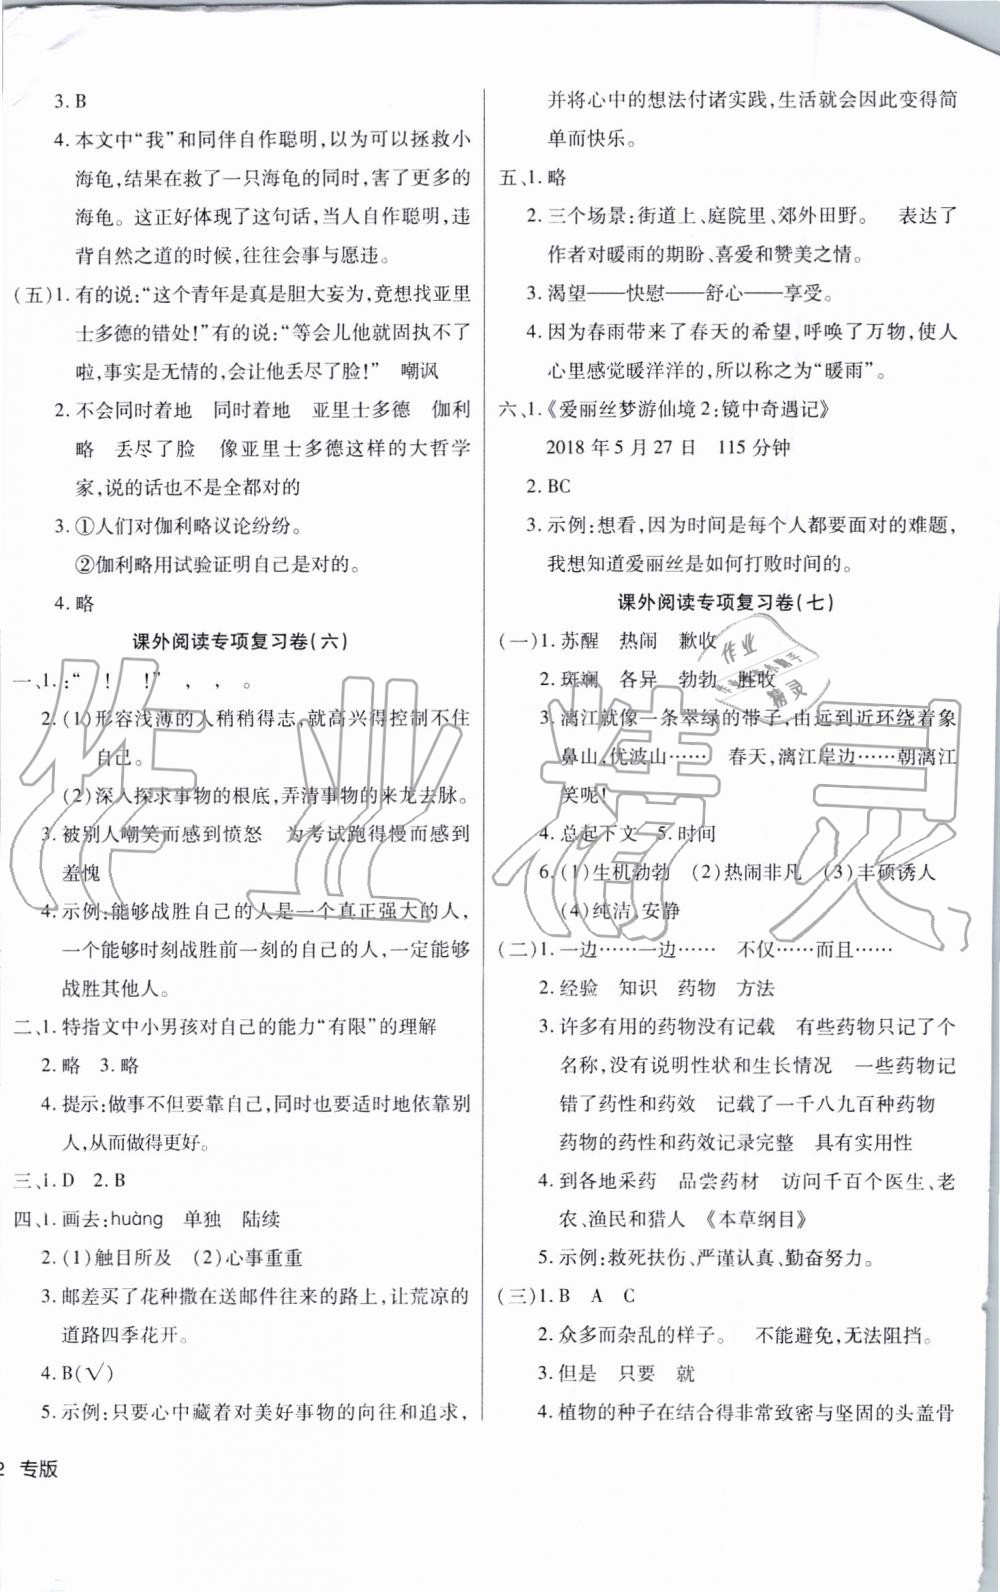 3. B
4. 本文中“我”和同伴自作聪明,以为可以拯救小
海龟,结果在救了一只海龟的同时,害了更多的
海龟。这正好体现了这句话,当人自作聪明,违
背自然之道的时候,往往会事与愿违。
(五)1. 有的说:“这个青年是真是胆大妄为,竟想找亚里
士多德的错处!”有的说:“等会儿他就固执不了
啦,事实是无情的,会让他丢尽了脸!” 嘲讽
2. 不会同时着地 同时着地 亚里士多德 伽利
略 丢尽了脸 像亚里士多德这样的大哲学
家,说的话也不是全都对的
3. ①人们对伽利略议论纷纷。
②伽利略用试验证明自己是对的。
4. 略
课外阅读专项复习卷(六)
一、1. :“ ! !” , , 。
2. (1)形容浅薄的人稍稍得志,就高兴得控制不住
自己。
(2)深入探求事物的根底,弄清事物的来龙去脉。
3. 被别人嘲笑而感到愤怒 为考试跑得慢而感到
羞愧
4. 示例:能够战胜自己的人是一个真正强大的人,
一个能够时刻战胜前一刻的自己的人,一定能够
战胜其他人。
二、1. 特指文中小男孩对自己的能力“有限”的理解
2. 略 3. 略
4. 提示:做事不但要靠自己,同时也要适时地依靠别
人,从而做得更好。
三、1. D 2. B
四、1. 画去:huàng 单独 陆续
2. (1)触目所及 (2)心事重重
3. 邮差买了花种撒在送邮件往来的路上,让荒凉的
道路四季花开。
4. B(√)
5. 示例:只要心中藏着对美好事物的向往和追求,
2 专版
并将心中的想法付诸实践,生活就会因此变得简
单而快乐。
五、1. 略
2. 三个场景:街道上、庭院里、郊外田野。 表达了
作者对暖雨的期盼、喜爱和赞美之情。
3. 渴望——快慰——舒心——享受。
4. 因为春雨带来了春天的希望,呼唤了万物,使人
心里感觉暖洋洋的,所以称之为“暖雨”。
六、1. 《爱丽丝梦游仙境2:镜中奇遇记》
2018年5月27日 115分钟
2. BC
3. 示例:想看,因为时间是每个人都要面对的难题,
我想知道爱丽丝是如何打败时间的。
课外阅读专项复习卷(七)
(一)1. 苏醒 热闹 歉收
2. 斑斓 各异 勃勃 胜收
3. 漓江就像一条翠绿的带子,由远到近环绕着象
鼻山、优波山…… 春天,漓江岸边……朝漓江
笑呢!
4. 总起下文 5. 时间
6. (1)生机勃勃 (2)热闹非凡 (3)丰硕诱人
(4)纯洁、安静
(二)1. 一边……一边…… 不仅……而且……
2. 经验 知识 药物 方法
3. 许多有用的药物没有记载 有些药物只记了个
名称,没有说明性状和生长情况 一些药物记
错了药性和药效 记载了一千八九百种药物
药物的药性和药效记录完整 具有实用性
4. 到各地采药 品尝药材 访问千百个医生、老
农、渔民和猎人 《本草纲目》
5. 示例:救死扶伤、严谨认真、勤奋努力。
(三)1. B A C
2. 众多而杂乱的样子。 不能避免,无法阻挡。
3. 但是 只要 就
4. 植物的种子在结合得非常致密与坚固的头盖骨
作业精灵
作业
精灵